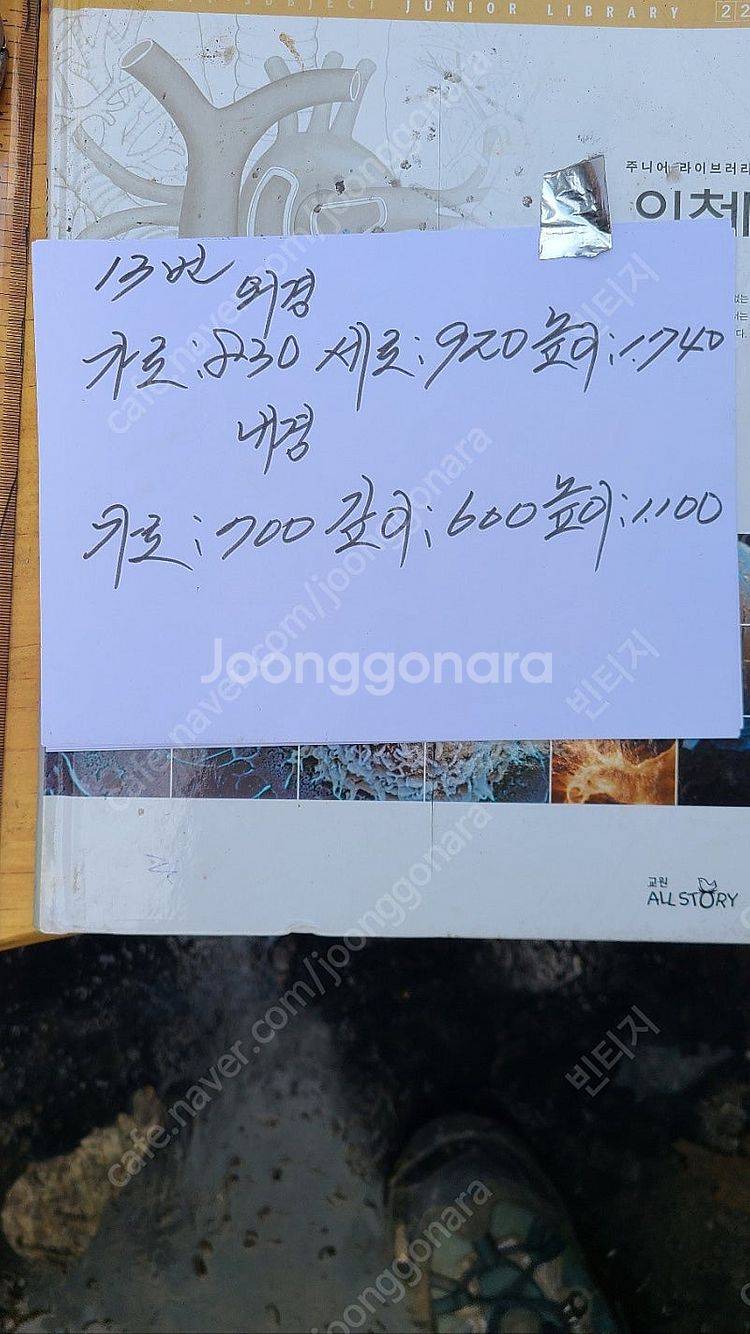 SUBJECT JUNIOR LIBRARY 22
주니어 라이브러리
인체
13번 외경
가로:830 세로:920 높이:1.740
내경
가로:700 깊이:600 높이:1.100
Joonggonara
빈티지
cafe.naver.com/joonggonara
교원
ALL STORY